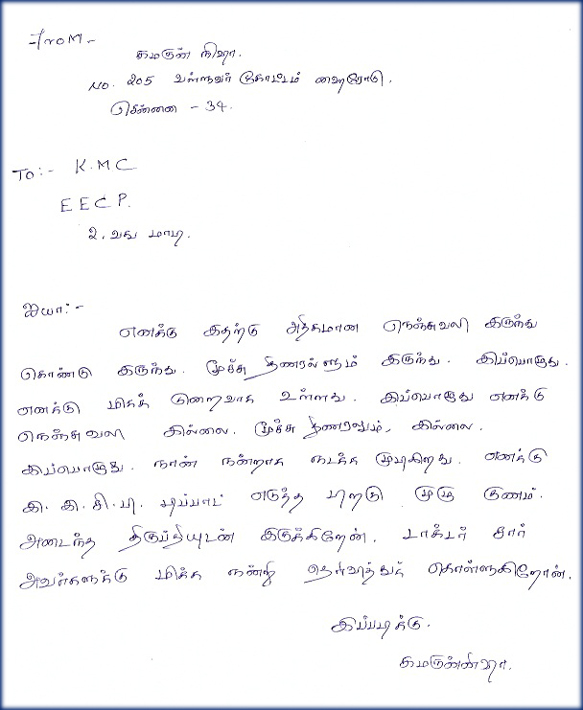 From-
கமருன் நிஷா.
No. 205 வள்ளுவர் கோட்டம் ஹைரோடு.
சென்னை - 34.
To:- K.M.C
E E C P.
2. வது மாடி.
ஐயா:-
எனக்கு இதற்கு அதிகமான நெஞ்சுவலி இருந்து
கொண்டு இருந்து. மூச்சு திணரல்ளும் இருந்து. இப்பொழுது.
எனக்கு மிகக் குறைவாக உள்ளது. இப்பொழுது எனக்கு
நெஞ்சுவலி இல்லை. மூச்சு திணரலும், இல்லை.
இப்பொழுது. நான் நன்றாக நடக்க முடிகிறது. எனக்கு
இ. இ. சி. பி. எடுத்த பிறகு முழு குணம்.
அடைந்த திருப்தியுடன் இருக்கிறேன். டாக்டர் சார்
அவர்களுக்கு மிக்க நன்றி தெரிவித்துக் கொள்ளுகிறோன்.
இப்படிக்கு.
கமருன்னிஷா.